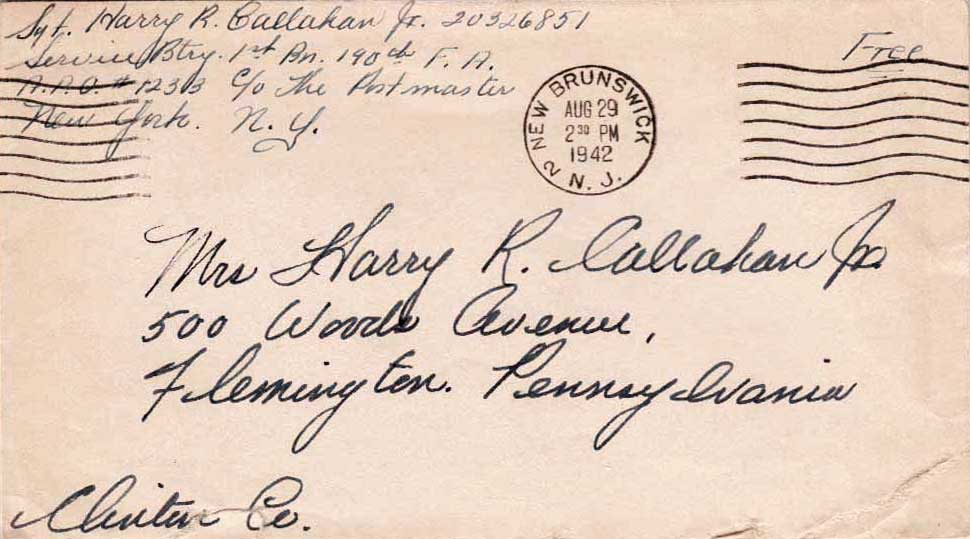 Sgt. Harry R. Callahan Jr. 20326851
Service Btry. 1st Bn. 190th F. A.
A.P.O. # 1230 C/o The Postmaster
New York. N. Y.
Free
NEW BRUNSWICK
AUG 29
2 30 PM
1942
2 N. J.
Mrs Harry R. Callahan Jr.
500 Woods Avenue,
Flemington. Pennsylvania
Clinton Co.